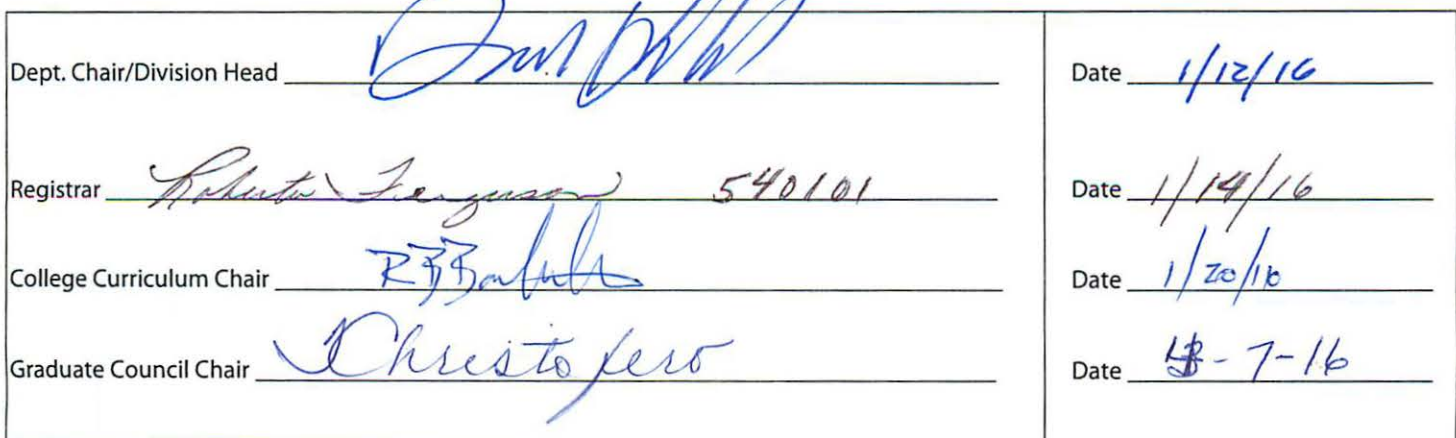 Dept. Chair/Division Head Date 1/12/16
Registrar Roberta Ferguson 540101 Date 1/14/16
College Curriculum Chair Date 1/20/16
Graduate Council Chair Date -7-16